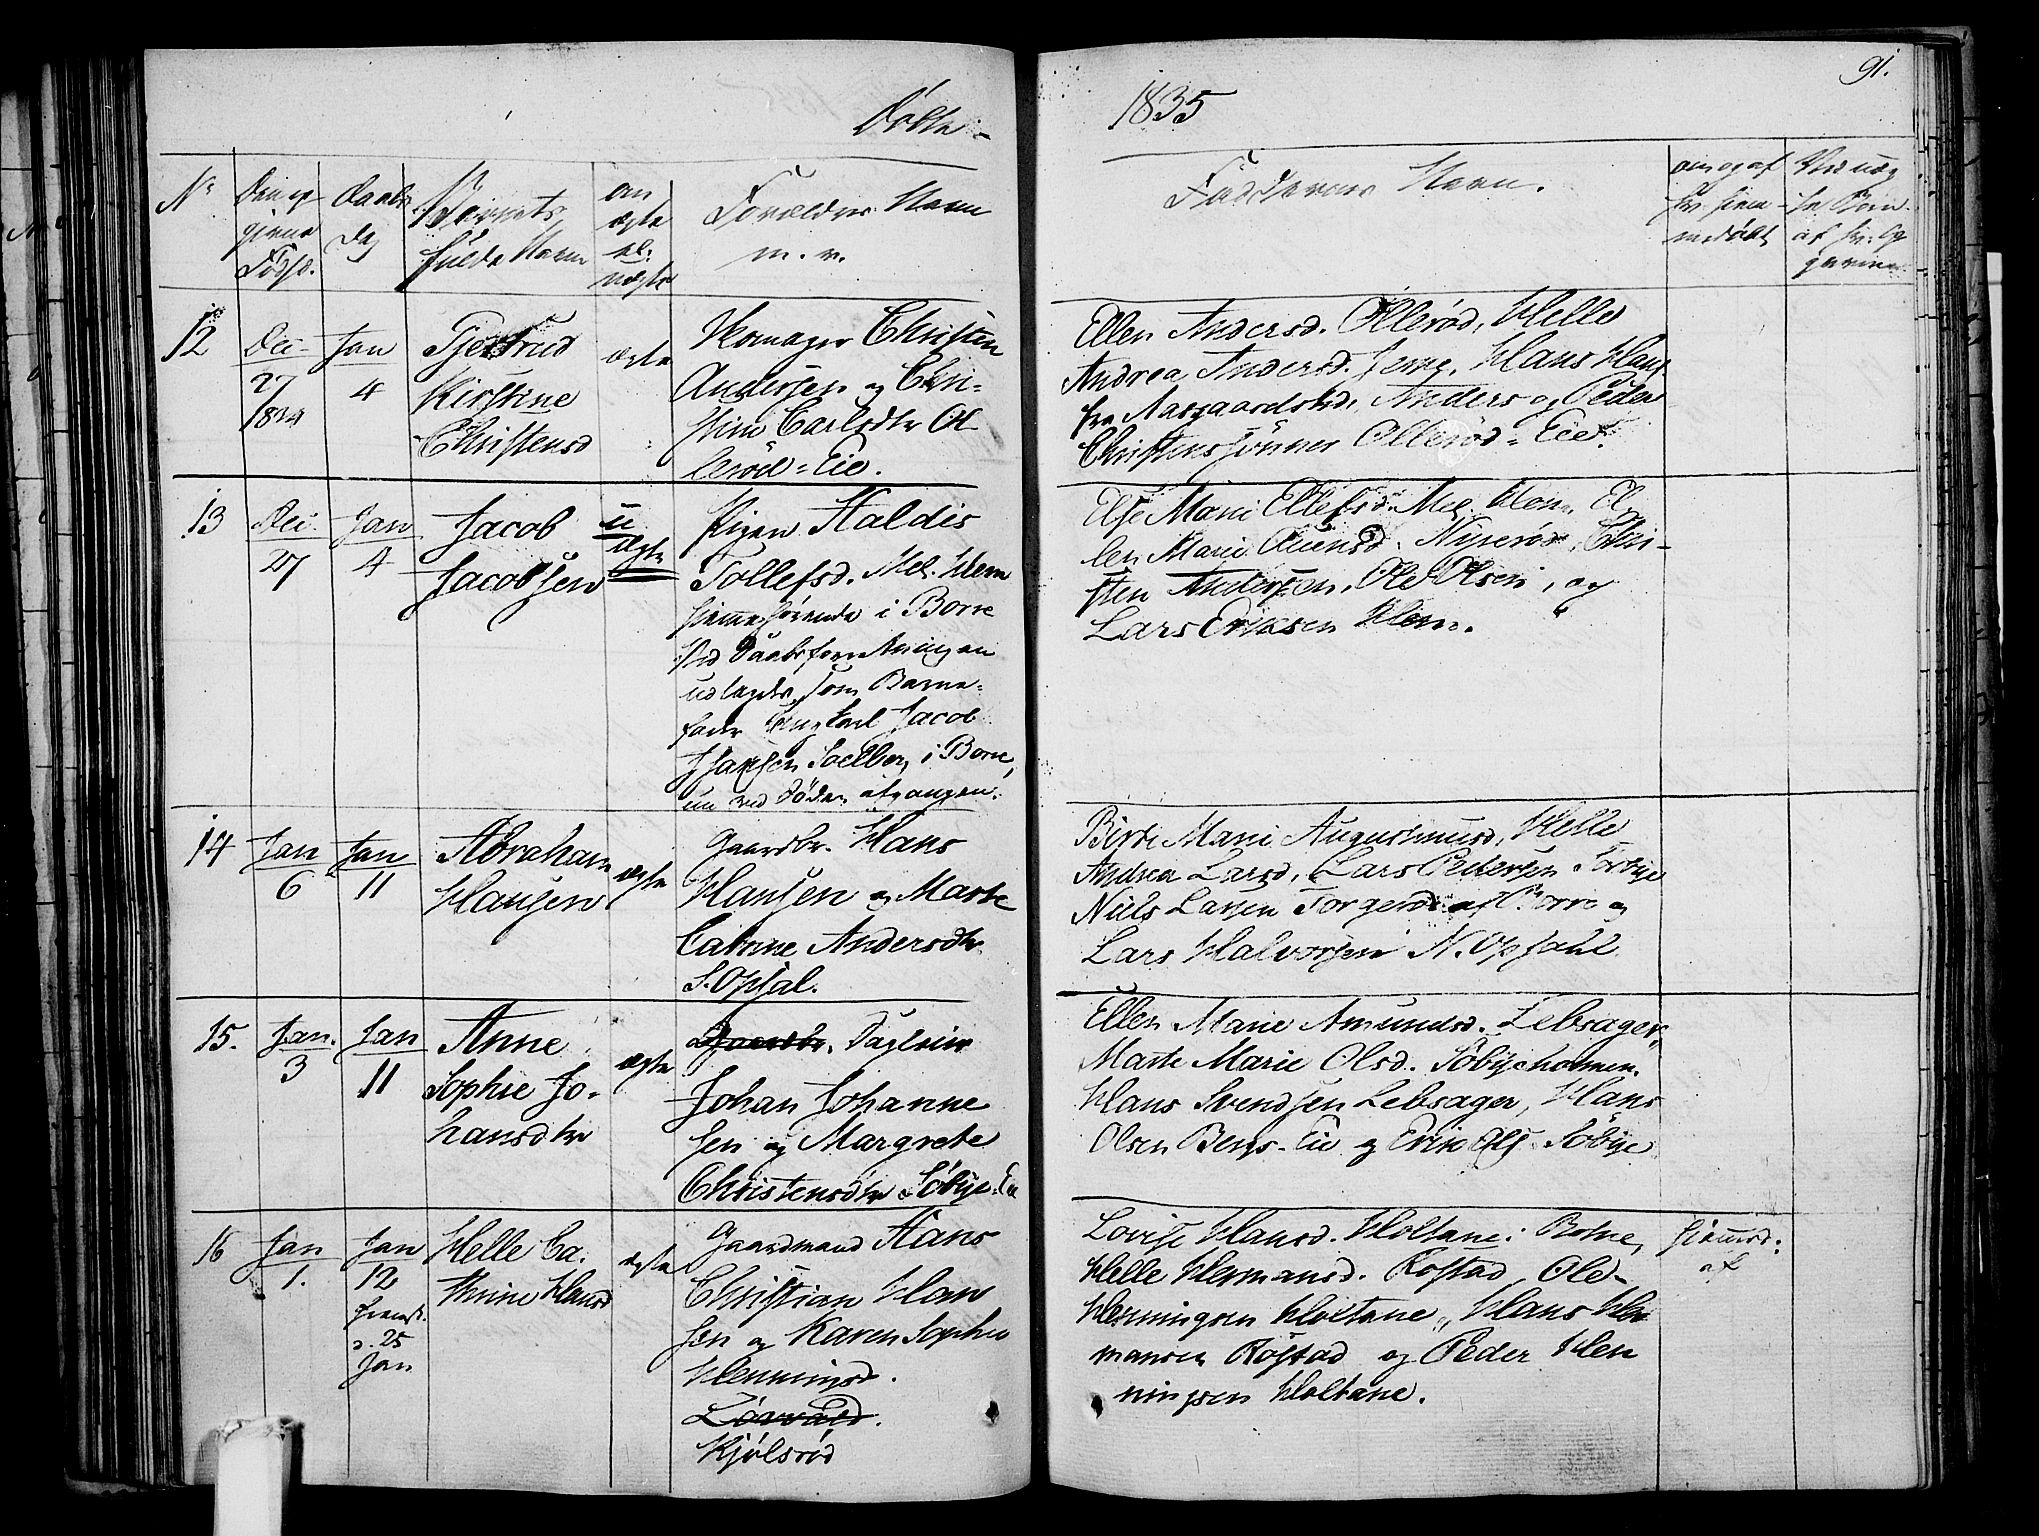 Döbte
1835
91.
No
Dag
Daabs
Dag
Barnets
fulde Navn
om
ægte
el.
uægte
Forældres Navn
m. v.
Faddernes Navn.
om og af
hr. hjem-
medöbt
12
Dec
27
1834
Jan
4
Gjertrud
Kirstine
Christensd
ægte
Skomager Christen
Andersen og Chri-
stine Carlsdtr Ol
leröd-Eie.
Ellen Andersd. Olleröd, Helle
Andrea Andersd. Hans Hans
fra Aasgaardstrd, Anders og Peder
Christenssönner Olleröd-Eiet.
13
Dec.
27
Jan
4
Jacob
Jacobsen
u
ægte
Pigen Haldis
Tollefsd. Mel. Hem
hjemmehörende i Borre
Ved Daabsforretningen
udlagdes som Barne-
fader Ungkarl Jacob
Hansen Soelberg i Borre,
nu ved Döden afgangen.
Else Marie Ellefsd. Mel. Hem, El
len Marie Nyeröd, Chri-
sten Andersen, Ole Olsen, og
Lars Eriksen Hem.
14
Jan
6
Jan
11
Abraham
Hansen
ægte
Gaardbr. Hans
Hansen og Marte
Catrine Andersdtr
S. Opsal.
Birte Marie Augustinusd, Helle
Andrea Larsd, Lars Pedersen Sörbye
Niels Larsen Torgersö af Borre og
Lars Halvorsen N. Opsahl
15.
Jan.
3
Jan
11
Anne
Sophie Jo-
hansdtr
ægte
Gaardbr. Dagleier
Johan Johanne
sen og Margrete
Christensdtr Söbye-Eie
Ellen Marie Amundsd. Lebsager,
Marte Marie Olsd. Söbyeholmen.
Hans Svendsen Lebsager, Hans
Olsen Bergs-Eie og Erik Ols Söbye
16
Jan
1.
Jan
12
fremst.
d. 25
Jan
Helle Ca.
thrine Hansd
ægte
Gaardmand Hans
Christian Han
sen og Karen Sophie
Henningsd.
Kjölsröd
Lovise Hansd. Holtane i Botne,
Helle Hermansd. Rostad, Ole
Henningsen Holtane, Hans Her
mansen Röstad og Peder Hen
ningsen Holtane.
hjemmd:
af